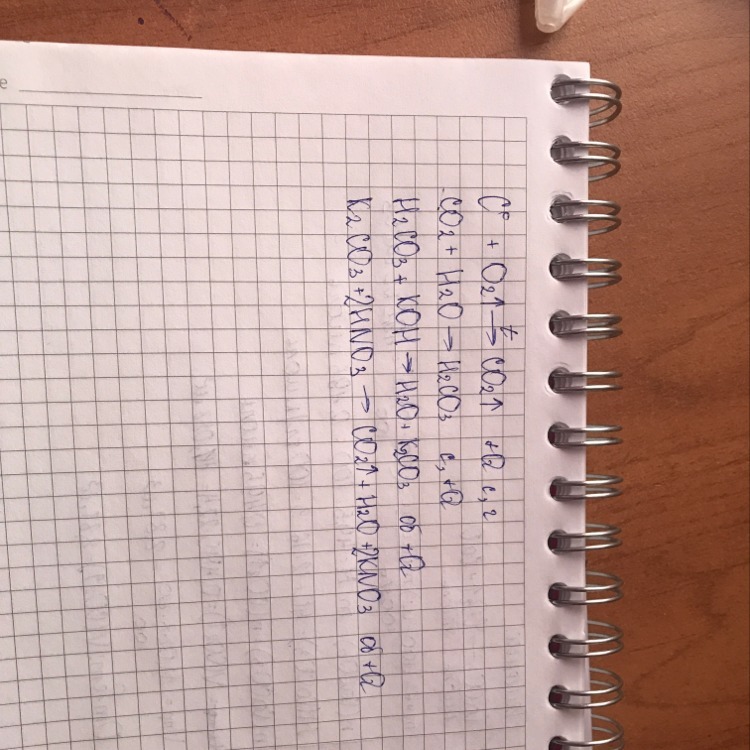 C⁰ + O₂↑ →ᵗ CO₂↑ +Q с, г
CO₂ + H₂O → H₂CO₃ с, +Q
H₂CO₃ + KOH → H₂O + K₂CO₃ об +Q
K₂CO₃ + 2HNO₃ → CO₂↑ + H₂O + 2KNO₃ об +Q
е